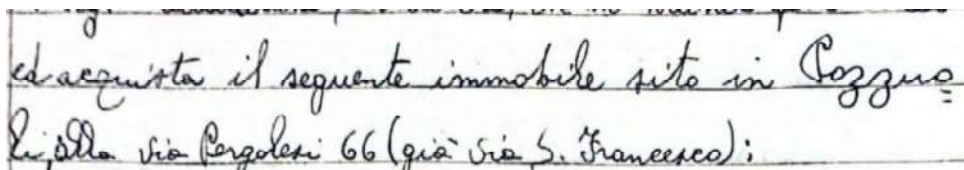 ed acquista il seguente immobile sito in Pozzuo=
li, alla via Pergolesi 66 (già via S. Francesco):